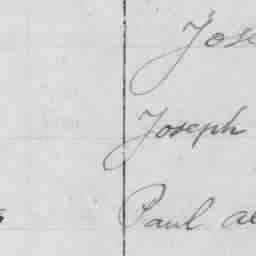 Jose
Joseph
Paul al